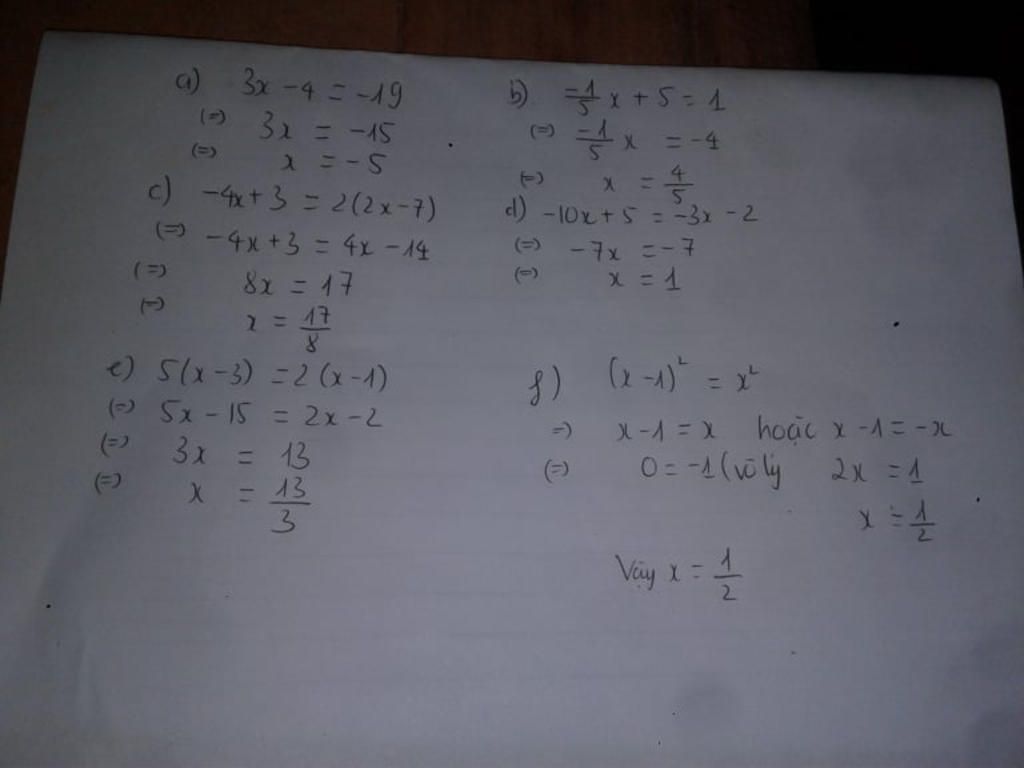 a) 3x - 4 = -19
(=) 3x = -15
(=) x = -5
b) -1/5 x + 5 = 1
(=) -1/5 x = -4
(=) x = 4/5
c) -4x + 3 = 2(2x - 7)
(=) -4x + 3 = 4x - 14
(=) 8x = 17
(=) x = 17/8
d) -10x + 5 = -3x - 2
(=) -7x = -7
(=) x = 1
e) 5(x - 3) = 2(x - 1)
(=) 5x - 15 = 2x - 2
(=) 3x = 13
(=) x = 13/3
f) (x - 1)² = x²
=) x - 1 = x hoặc x - 1 = -x
(=) 0 = -1 (vô lý 2x = 1
x = 1/2
Vậy x = 1/2